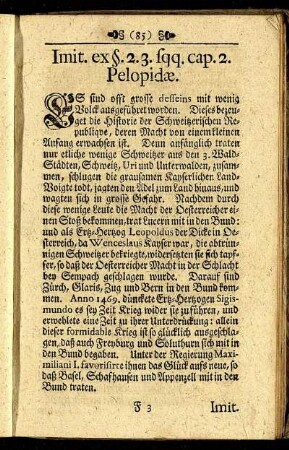 (85)
Imit. ex §. 2. 3. sqq. cap. 2.
Pelopidæ.
ES sind offt grosse desseins mit wenig
Volck ausgeführet worden. Dieses bezeu-
get die Historie der Schweitzerischen Re-
publiqve, deren Macht von einem kleinen
Anfang erwachsen ist. Denn anfänglich traten
nur etliche wenige Schweitzer aus den 3. Wald-
Städten, Schweitz, Uri und Unterwalden, zusam-
men, schlugen die grausamen Kayserlichen Land-
Voigte todt, jagten den Adel zum Land hinaus, und
wagten sich in grosse Gefahr. Nachdem durch
diese wenige Leute die Macht der Oesterreicher ei-
nen Stoß bekommen, trat Lucern mit in den Bund:
und als Ertz-Hertzog Leopoldus der Dicke in Oe-
sterreich, da Wenceslaus Kayser war, die abtrün-
nigen Schweitzer bekriegte, widersetzten sie sich tapf-
fer, so daß der Oesterreicher Macht in der Schlacht
bey Sempach geschlagen wurde. Darauf sind
Zürch, Glaris, Zug und Bern in den Bund kom-
men. Anno 1469. dünckete Ertz-Hertzogen Sigis-
mundo es sey Zeit Krieg wider sie zu führen, und
erwehlete eine Zeit zu ihrer Unterdrückung: allein
dieser formidable Krieg ist so glücklich ausgeschla-
gen, daß auch Freyburg und Soluthurn sich mit in
den Bund begaben. Unter der Regierung Maxi-
miliani I. favorisirte ihnen das Glück aufs neue, so
daß Basel, Schafhausen und Appenzell mit in den
Bund traten.
F 3
Imit.